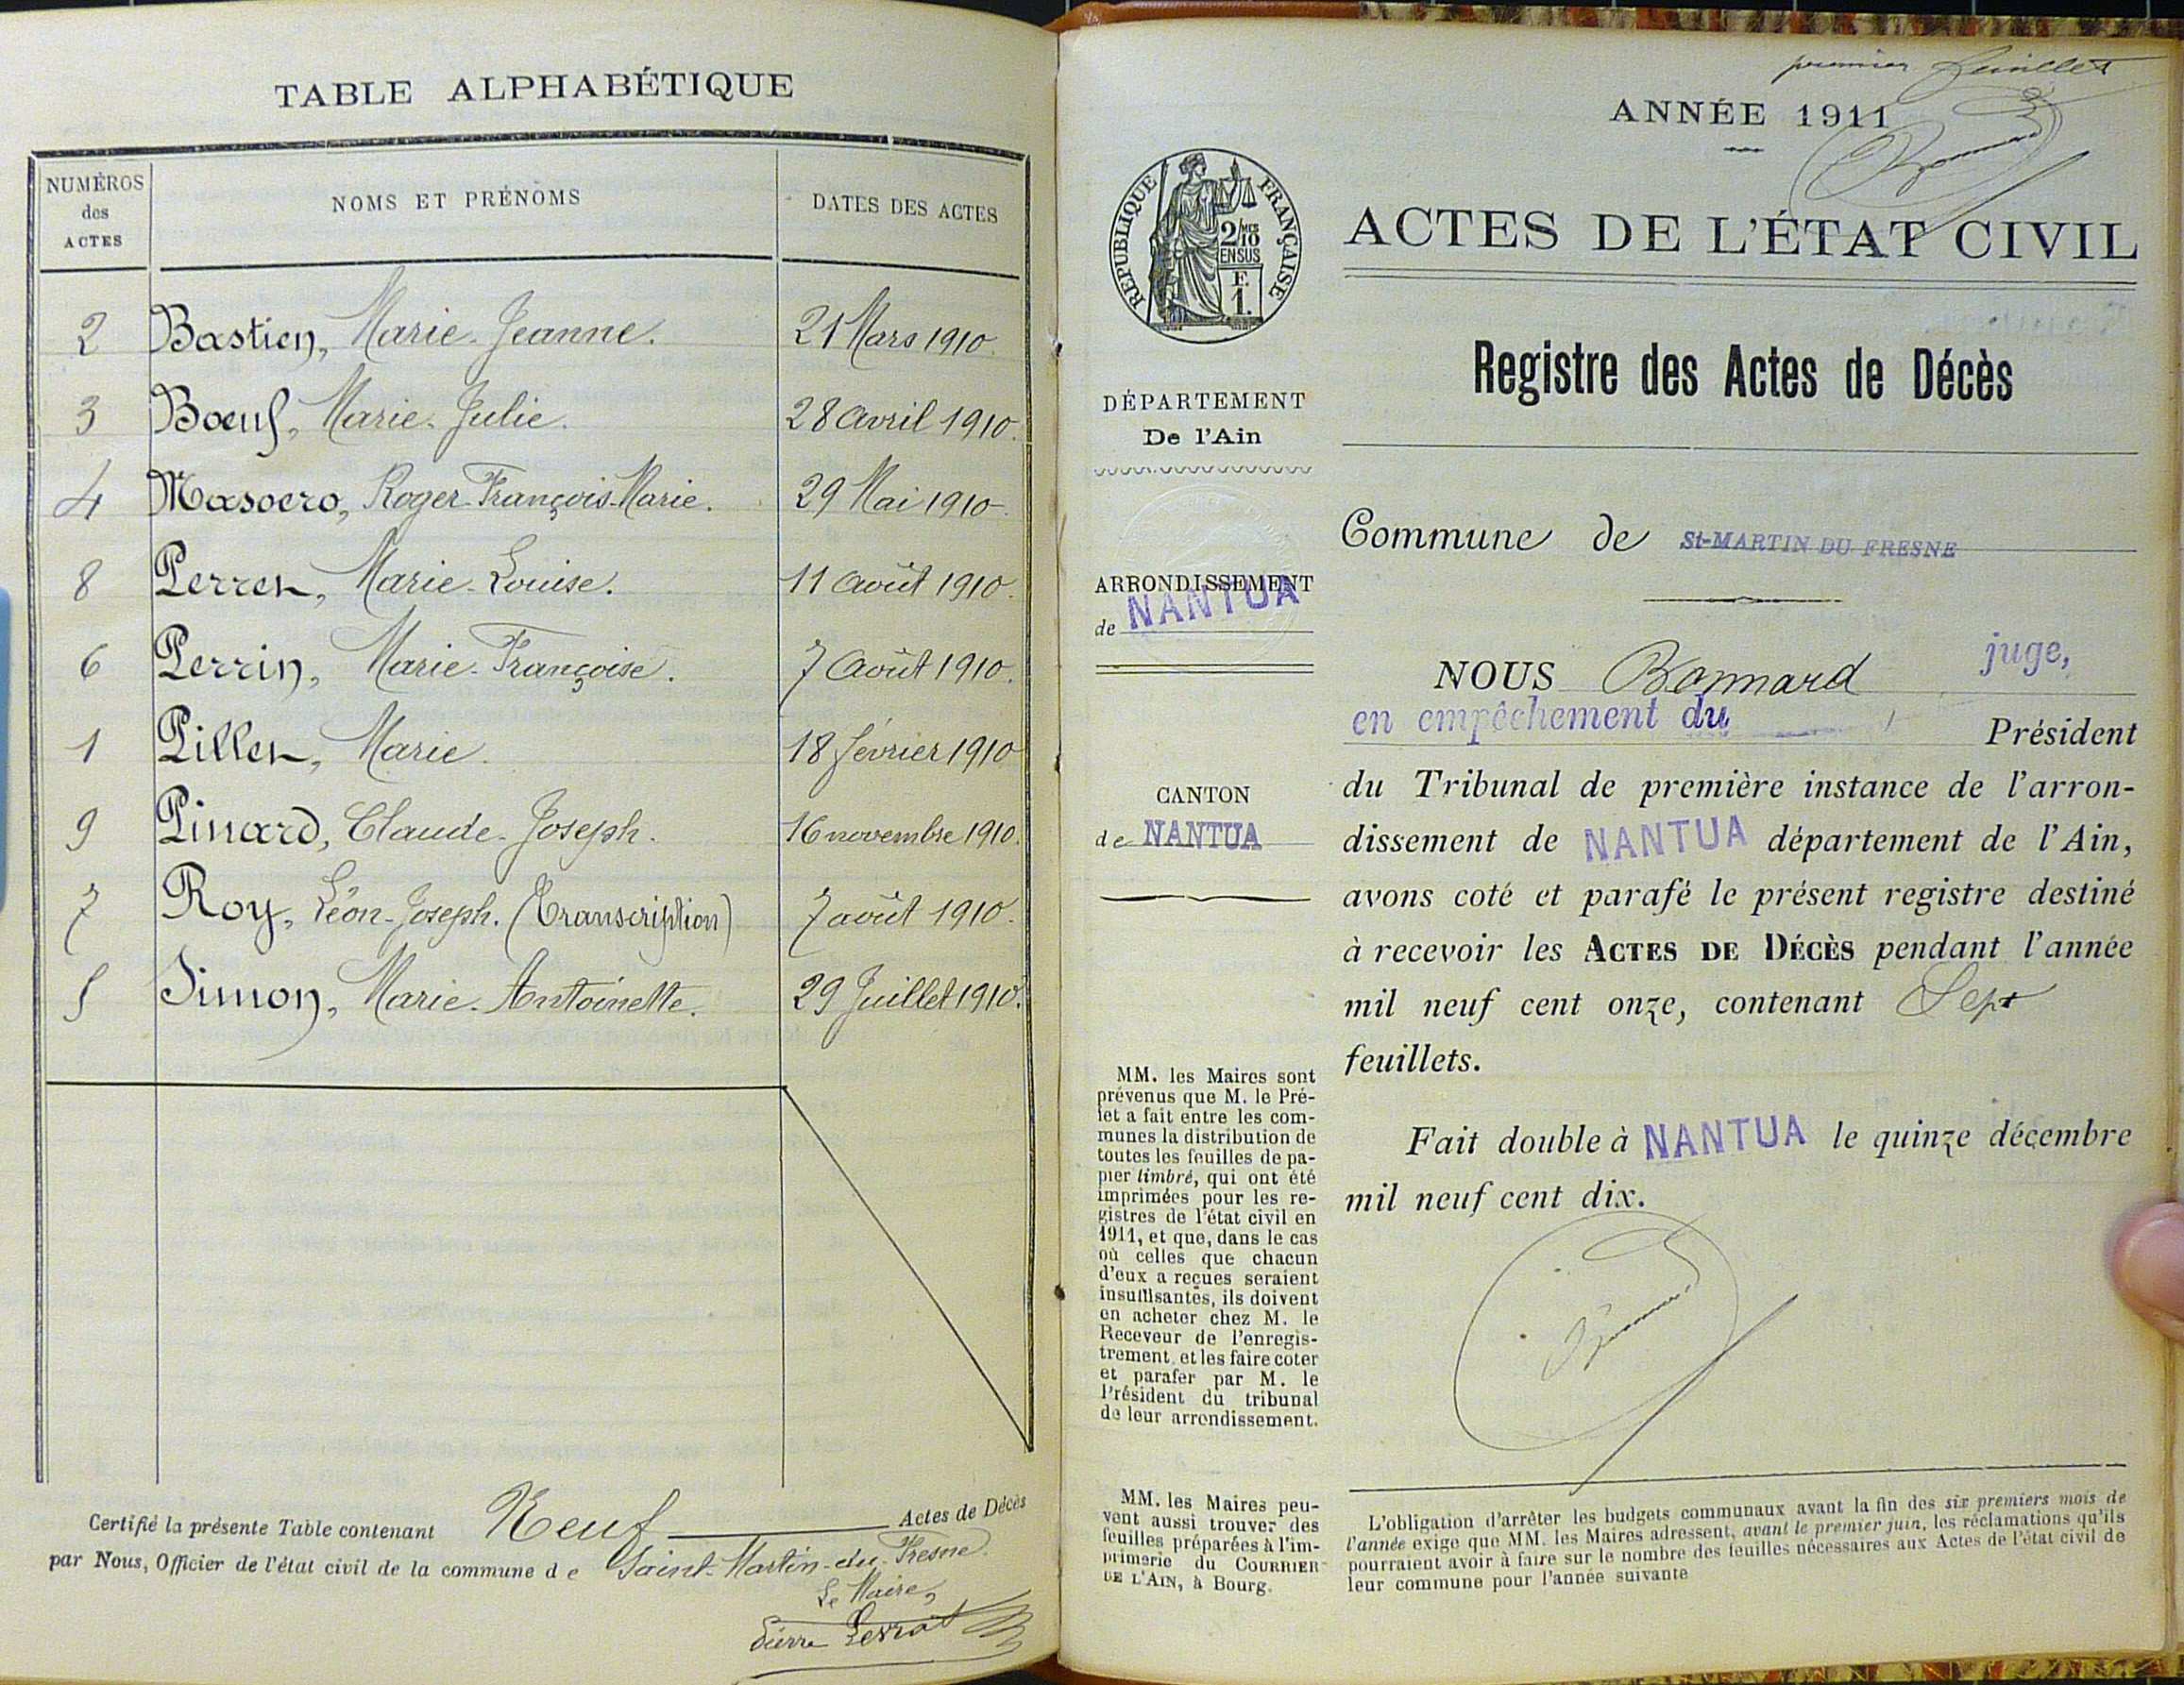 TABLE ALPHABÉTIQUE
NUMÉROS des ACTES
NOMS ET PRÉNOMS
DATES DES ACTES
2 Bastien, Marie-Jeanne. 21 Mars 1910.
3 Bœuf, Marie-Julie. 28 avril 1910.
4 Masoero, Roger-François-Marie. 29 Mai 1910.
8 Perret, Marie-Louise. 11 août 1910.
6 Perrin, Marie-Françoise. 7 août 1910.
1 Pillet, Marie. 18 février 1910
9 Pinard, Claude-Joseph. 16 novembre 1910.
7 Roy, Léon-Joseph. (Transcription) 7 août 1910.
5 Simon, Marie-Antoinette. 29 Juillet 1910.
Certifié la présente Table contenant Neuf Actes de Décès
par Nous, Officier de l'état civil de la commune de Saint-Martin-du-Fresne.
Le Maire,
Pierre
premier feuillet
ANNÉE 1911
RÉPUBLIQUE FRANÇAISE
2/10 MES
EN SUS
F.
1.
ACTES DE L'ÉTAT CIVIL
Registre des Actes de Décès
DÉPARTEMENT
De l'Ain
ARRONDISSEMENT
de NANTUA
CANTON
de NANTUA
MM. les Maires sont
prévenus que M. le Pré-
fet a fait entre les com-
munes la distribution de
toutes les feuilles de pa-
pier timbré, qui ont été
imprimées pour les re-
gistres de l'état civil en
1911, et que, dans le cas
où celles que chacun
d'eux a reçues seraient
insuffisantes, ils doivent
en acheter chez M. le
Receveur de l'enregis-
trement, et les faire coter
et parafer par M. le
Président du tribunal
de leur arrondissement.
MM. les Maires peu-
vent aussi trouver des
feuilles préparées à l'im-
primerie du COURRIER
DE L'AIN, à Bourg.
Commune de St-MARTIN DU FRESNE
NOUS Bonnard juge,
en empêchement du Président
du Tribunal de première instance de l'arron-
dissement de NANTUA département de l'Ain,
avons coté et parafé le présent registre destiné
à recevoir les ACTES DE DÉCÈS pendant l'année
mil neuf cent onze, contenant Sept
feuillets.
Fait double à NANTUA le quinze décembre
mil neuf cent dix.
L'obligation d'arrêter les budgets communaux avant la fin des six premiers mois de
l'année exige que MM. les Maires adressent, avant le premier juin, les réclamations qu'ils
pourraient avoir à faire sur le nombre des feuilles nécessaires aux Actes de l'état civil de
leur commune pour l'année suivante